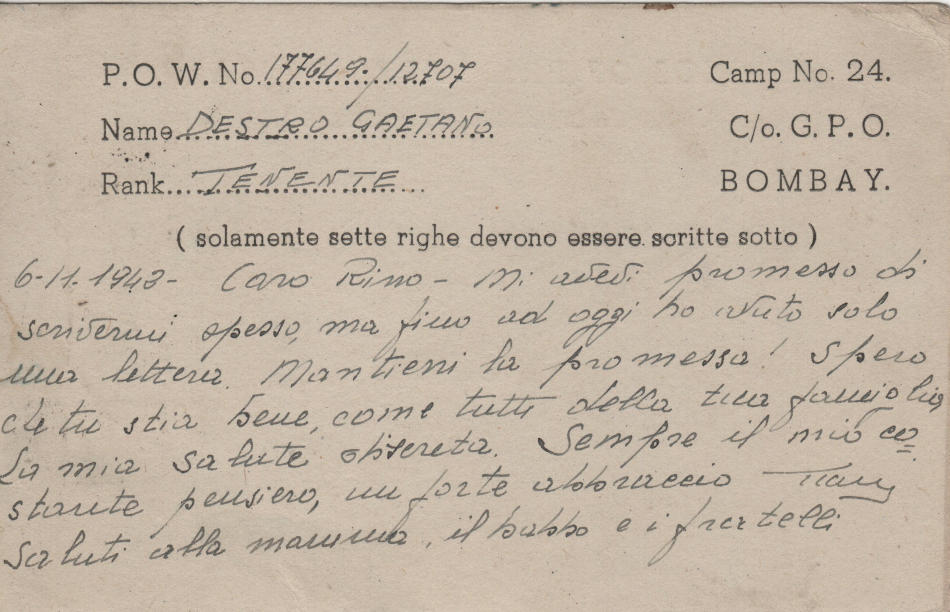 P.O.W. No. 177649./12707 Camp No. 24.
Name DESTRO GAETANO C/o. G. P. O.
Rank TENENTE BOMBAY.
( solamente sette righe devono essere scritte sotto )
6-11-1943- Caro Rino - Mi avevi promesso di
scrivermi spesso, ma fino ad oggi ho avuto solo
una lettera. Mantieni la promessa! Spero
che tu stia bene, come tutti della tua famiglia,
La mia salute discreta. Sempre il mio co
stante pensiero, un forte abbraccio
Saluti alla mamma, il babbo e i fratelli